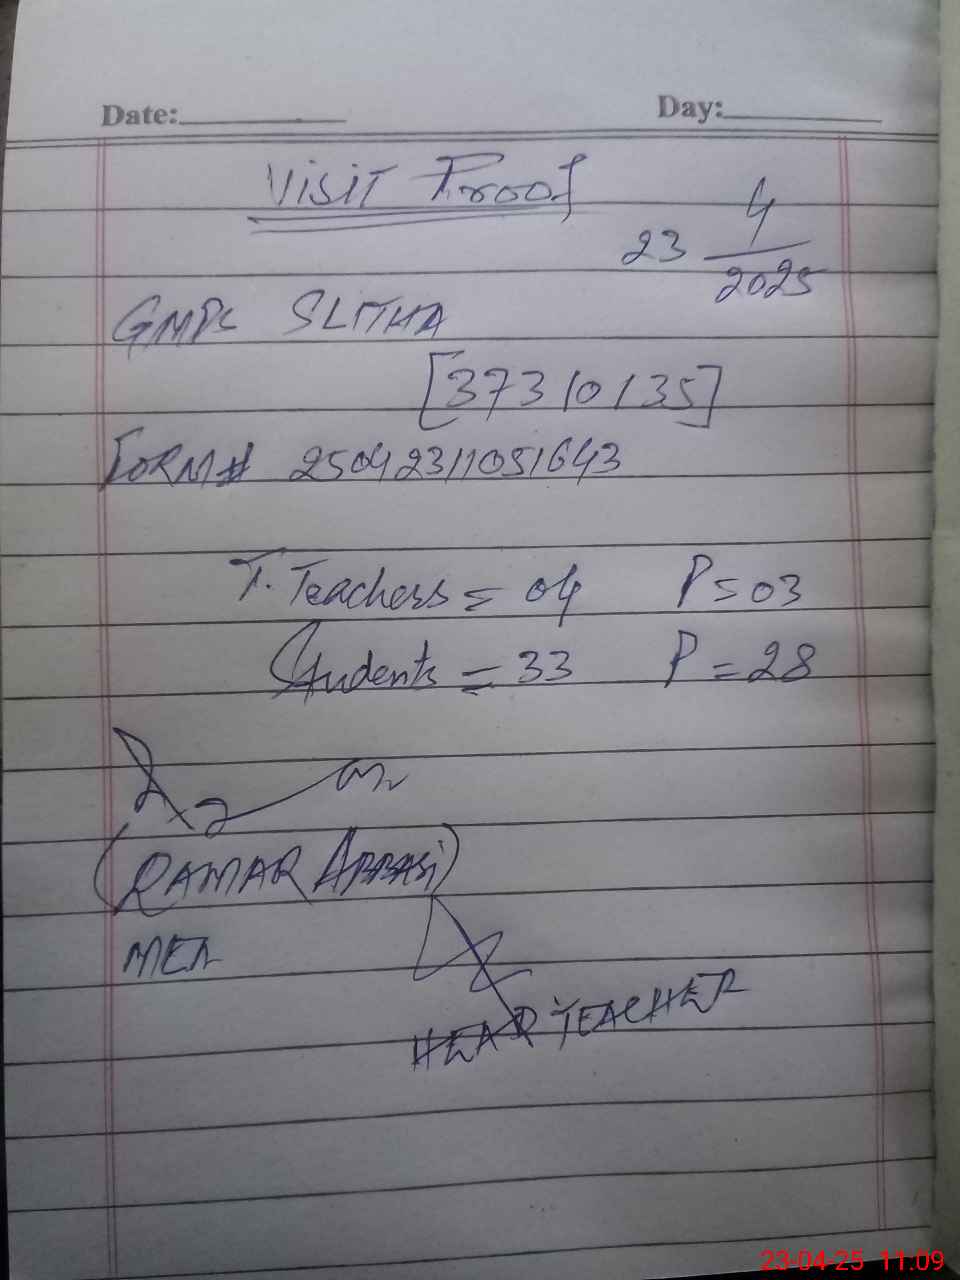 Date: Day:
Visit Proof
23 4/2025
GMPS SLITHA
[37310135]
FORM# 25042311051643
T. Teachers = 04 P = 03
Students = 33 P = 28
(QAMAR ABBASI)
MEA
HEAD TEACHER
23-04-25 11:09